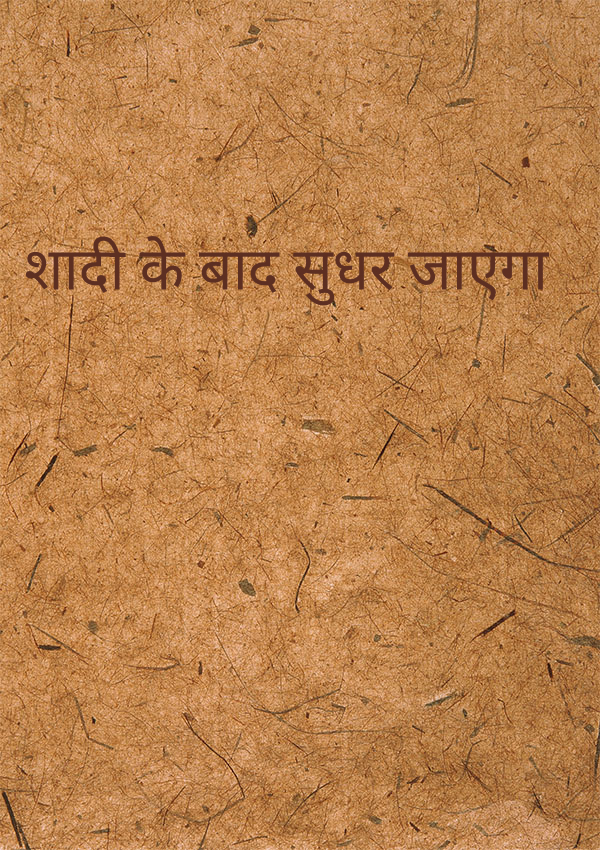 शादी के बाद सुधर जाएंगा